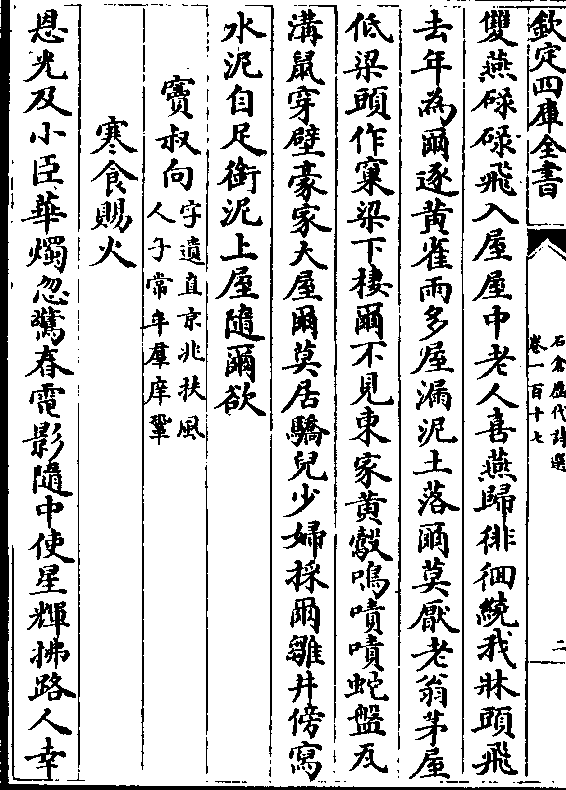 欽定四庫全書
石倉歷代詩選
卷一百十七
二
雙燕碌碌飛入屋屋中老人喜燕歸徘徊繞我牀頭飛
去年為爾逐黃雀雨多屋漏泥土落爾莫厭老翁茅屋
低梁頭作窠梁下棲爾不見東家黃鷇鳴嘖嘖蛇盤瓦
溝鼠穿壁豪家大屋爾莫居驕兒少婦採爾雛井傍窩
水泥自足銜泥上屋隨爾欲
竇叔向
字遺直京兆扶風
人子常牟羣庠鞏
寒食賜火
恩光及小臣華燭忽驚春電影隨中使星輝拂路人幸